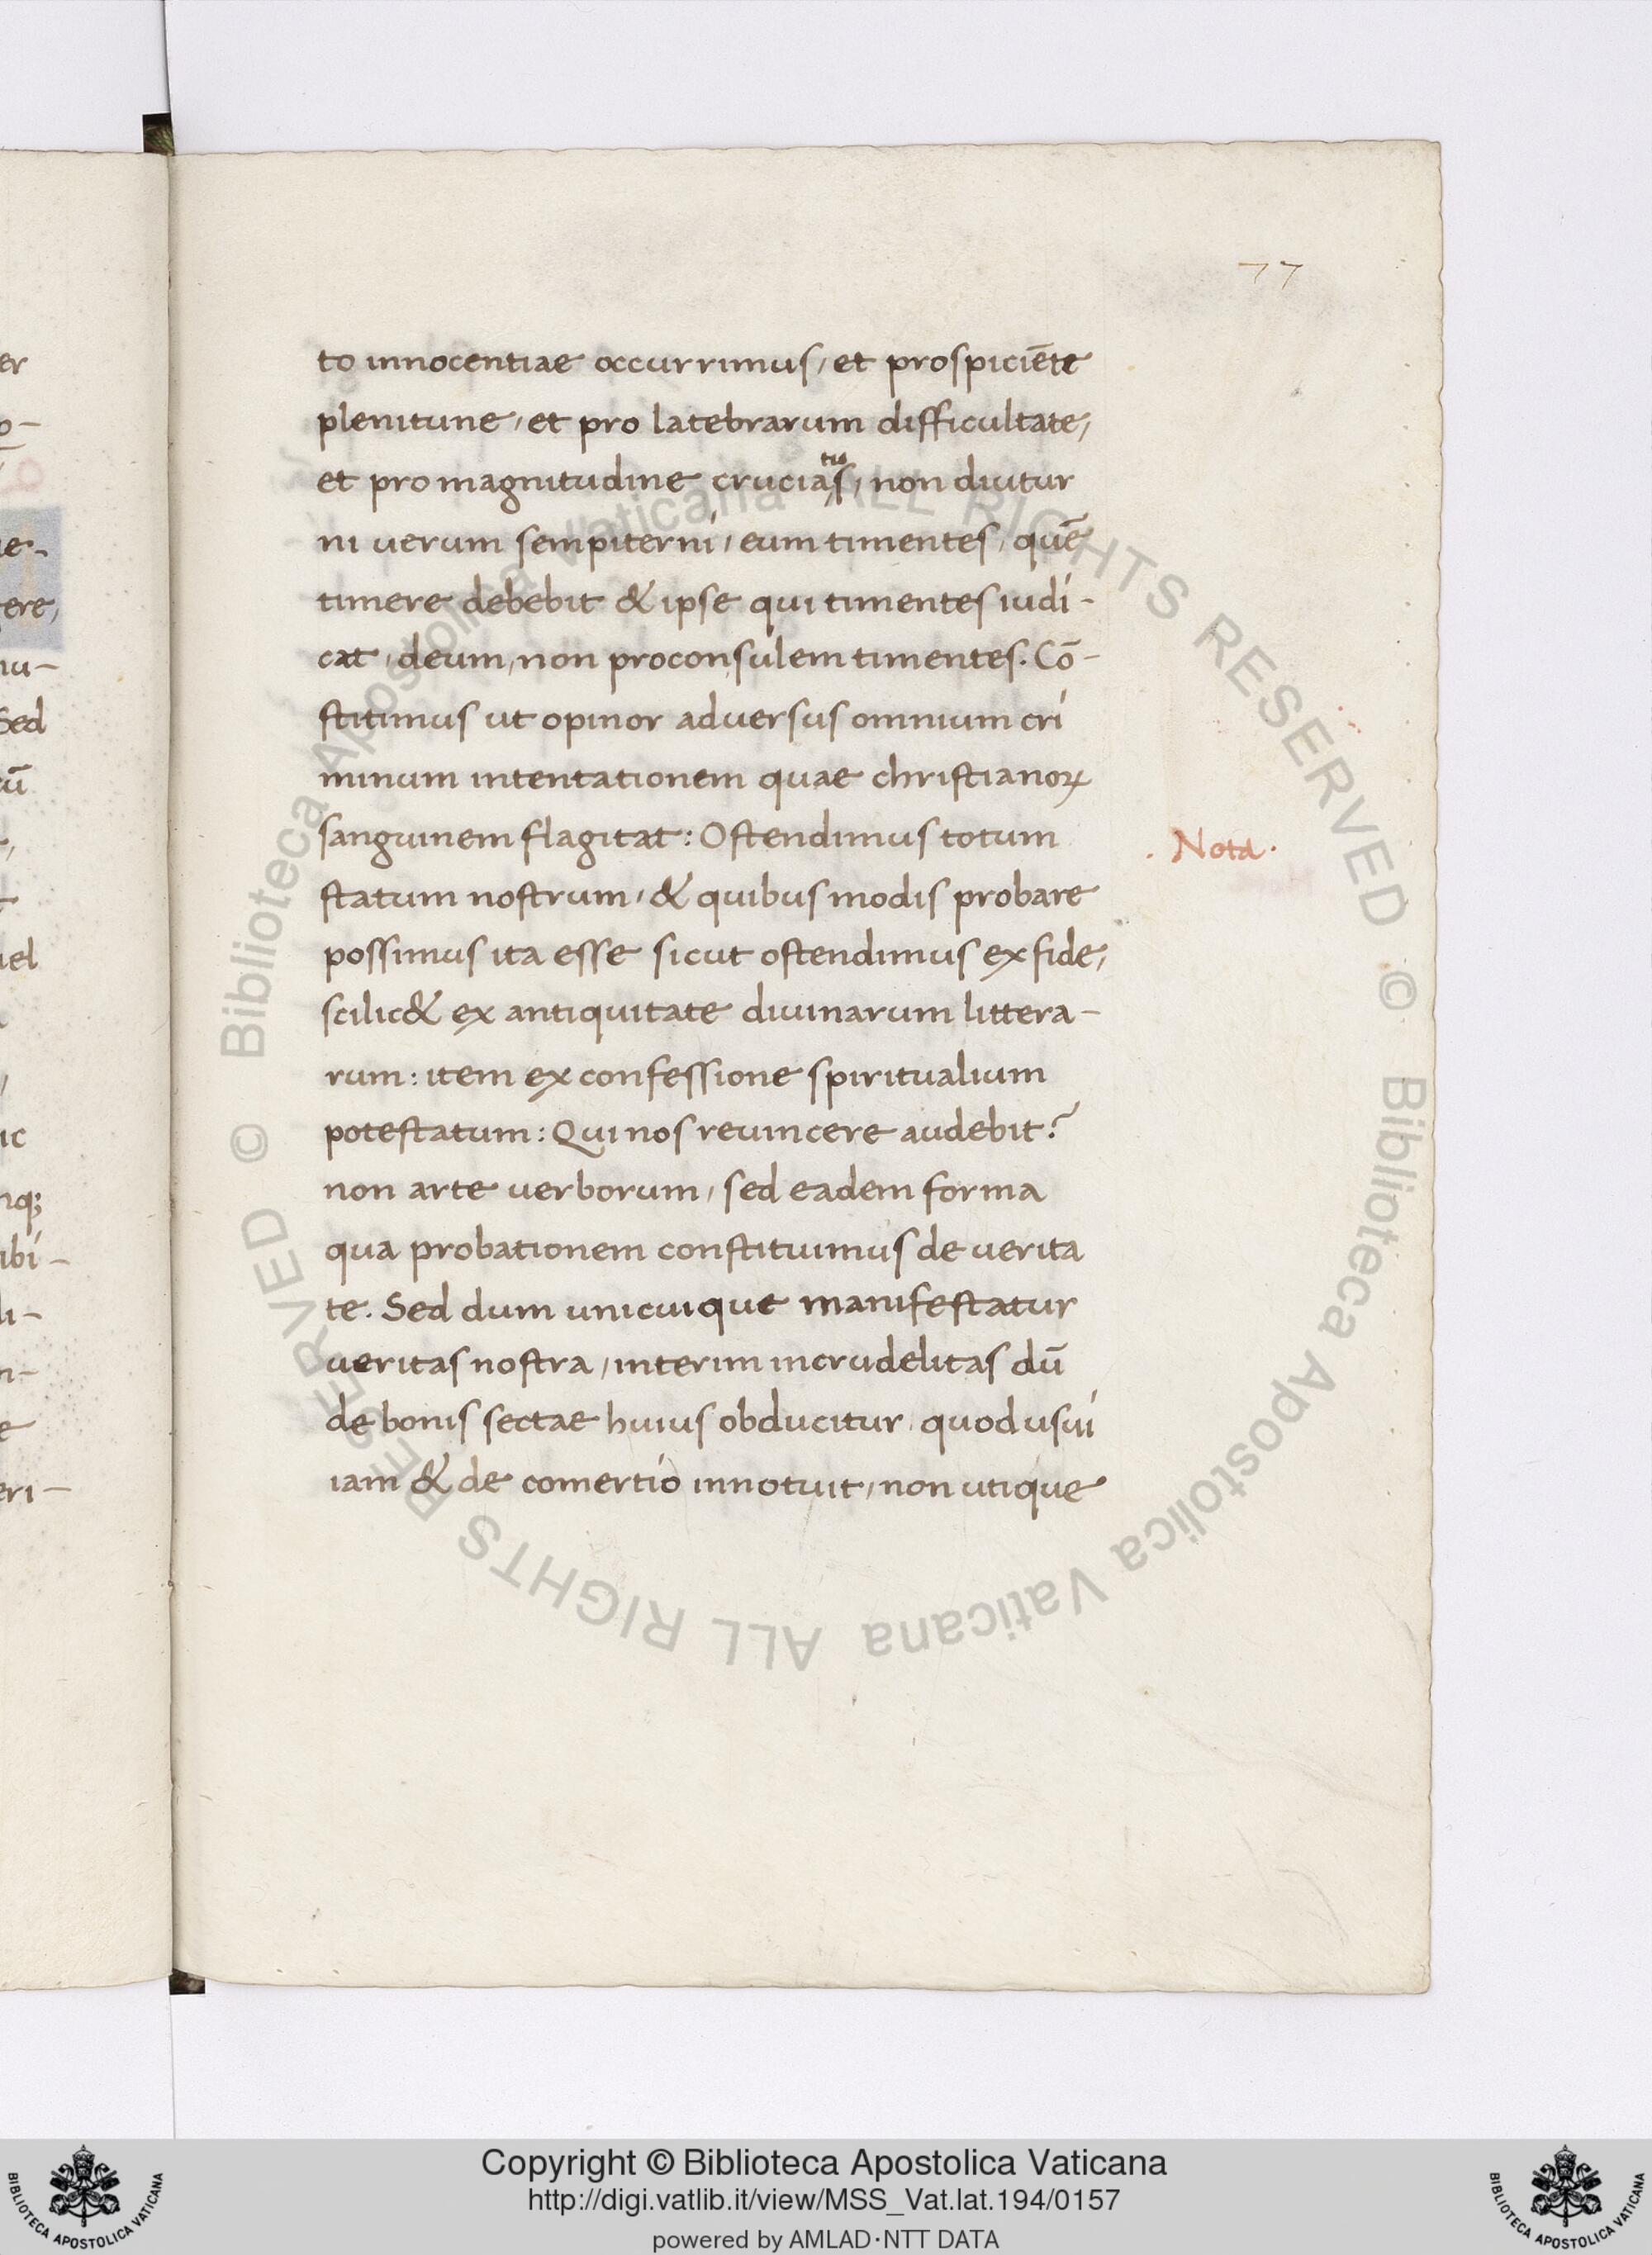 77
to innocentiae occurrimus, et prospiciēte
plenitune, et pro latebrarum difficultate,
et pro magnitudine cruciatus, non diutur
ni uerum sempiterni, eum timentes, quē
timere debebit & ipse qui timentes iudi-
cat, deum, non proconsulem timentes. Cō-
stitimus ut opinor aduersus omnium cri
minum intentationem quae christianoꝝ
sanguinem flagitat: Ostendimus totum
. Nota.
statum nostrum, & quibus modis probare
possimus ita esse sicut ostendimus ex fide,
scilic& ex antiquitate diuinarum littera-
rum: item ex confessione spiritualium
potestatum: Qui nos reuincere audebit?
non arte uerborum, sed eadem forma
qua probationem constituimus de uerita
te. Sed dum unicuique manifestatur
ueritas nostra, interim incrudelitas dū
de bonis sectae huius obducitur quod usui
iam & de comertio innotuit, non utique
er
ere,
nu-
Sed
uel
ic
nq;
ibi-
li-
n-
eri-
© Biblioteca Apostolica Vaticana ALL RIGHTS RESERVED © Biblioteca Apostolica Vaticana ALL RIGHTS RESERVED
Copyright © Biblioteca Apostolica Vaticana
http://digi.vatlib.it/view/MSS_Vat.lat.194/0157
powered by AMLAD·NTT DATA
BIBLIOTECA APOSTOLICA VATICANA
BIBLIOTECA APOSTOLICA VATICANA